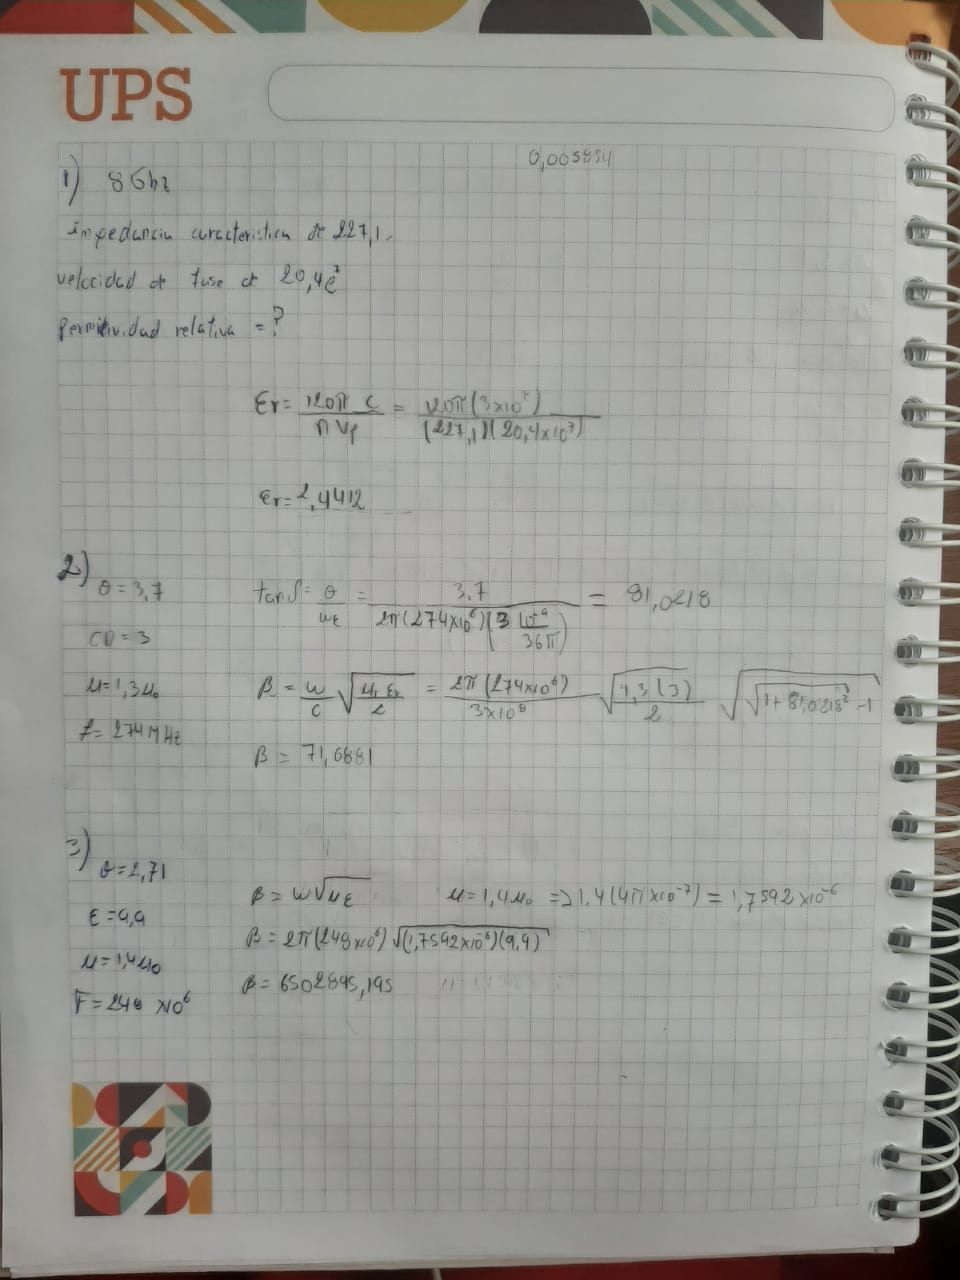 UPS
0,005854
1) 8 Ghz
impedancia caracteristica de 227,1.
velocidad de fase de 20,4e⁷
Permitividad relativa = ?
Er = 120π c / n Vp = 120π (3×10⁸) / (227,1)(20,4×10⁷)
Er = 2,4412
2)
θ = 3,7
CD = 3
μ = 1,3μ₀
f = 274 MHz
tan δ = θ / wε = 3,7 / 2π(274×10⁶)(3 10⁻⁹/36π) = 81,0218
β = w/c √(μr εr / 2) = 2π(274×10⁶) / 3×10⁸ √(1,3(3) / 2) √(√(1+81,0218²) -1)
β = 71,6881
3)
θ = 2,71
ε = 9,9
μ = 1,4μ₀
F = 248 ×10⁶
β = w√με μ = 1,4μ₀ => 1,4(4π×10⁻⁷) = 1,7592×10⁻⁶
β = 2π(248×10⁶) √(1,7592×10⁻⁶)(9,9)
β = 6502895,195